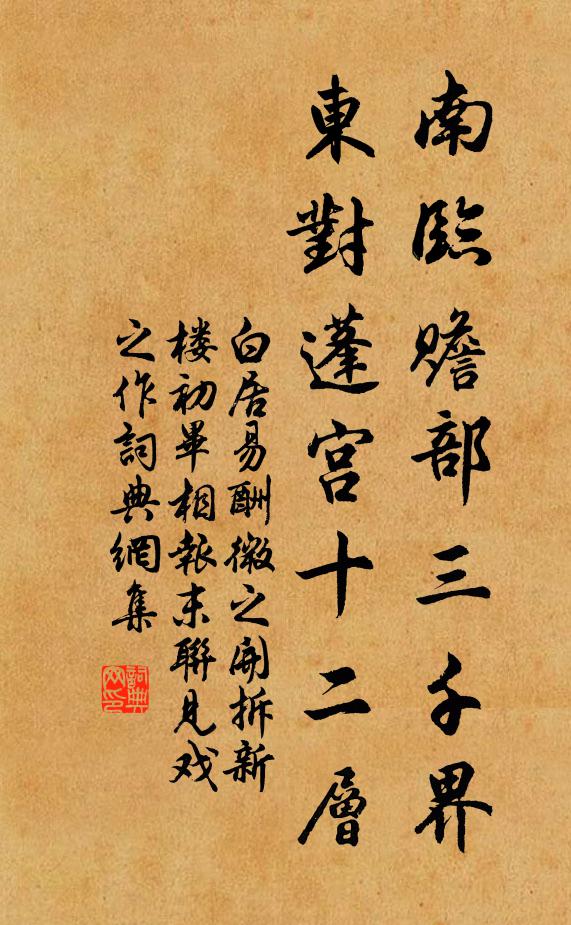 南臨贍部三千界
東對蓬宮十二層
白居易酬微之開拆新
楼初畢相報末聯見戏
之作詞典網集
詞典网印